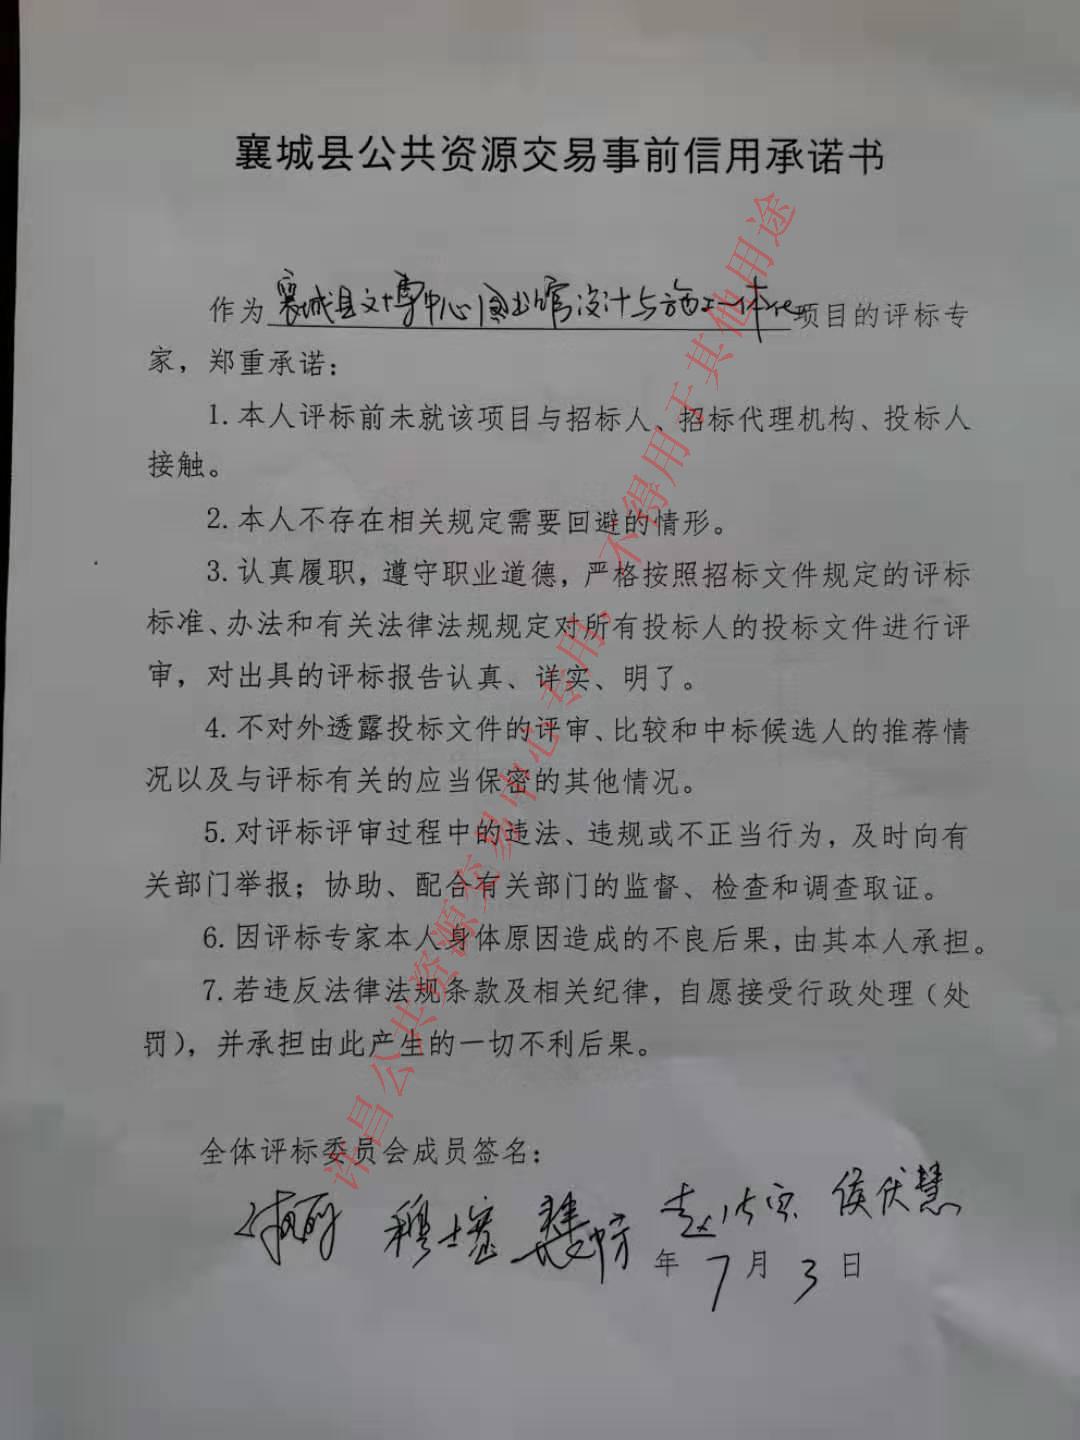 襄城县公共资源交易事前信用承诺书
作为襄城县文博中心图书馆设计与施工一体化项目的评标专
家，郑重承诺：
1.本人评标前未就该项目与招标人、招标代理机构、投标人
接触。
2.本人不存在相关规定需要回避的情形。
3.认真履职，遵守职业道德，严格按照招标文件规定的评标
标准、办法和有关法律法规规定对所有投标人的投标文件进行评
审，对出具的评标报告认真、详实、明了。
4.不对外透露投标文件的评审、比较和中标候选人的推荐情
况以及与评标有关的应当保密的其他情况。
5.对评标评审过程中的违法、违规或不正当行为，及时向有
关部门举报；协助、配合有关部门的监督、检查和调查取证。
6.因评标专家本人身体原因造成的不良后果，由其本人承担。
7.若违反法律法规条款及相关纪律，自愿接受行政处理（处
罚），并承担由此产生的一切不利后果。
全体评标委员会成员签名：
侯伏慧
年7月3日
许昌公共资源交易中心专用，不得用于其他用途